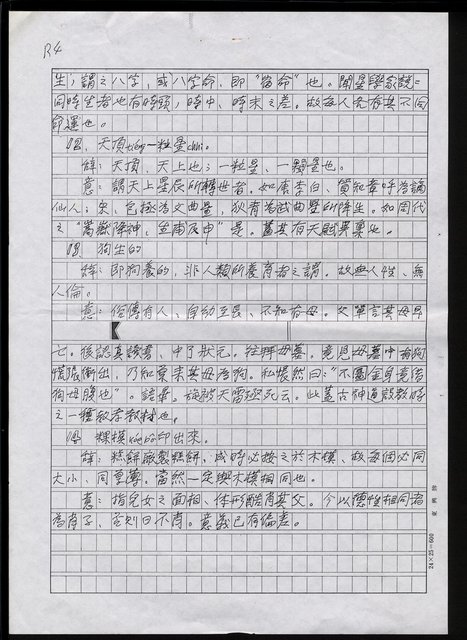 R4
生，謂之八字，或八字命，即“宿命”也。聞星學家說：
同時生者也有時頭，時中，時末之差。故每人先有其不同
命運也。
天頂 一粒星chhi.
解：天頂，天上也；一粒星，一顆星也。
意：謂天上星辰所轉世者，如唐李白、賀知章呼為謫
仙人；宋，包拯為文曲星，狄青為武曲星所降生。如周代
之“嵩嶽降神，生甫及申”是。蓋其有天賦異稟也。
狗生的
解：即狗養的，非人類所養育者之謂。故無人性、無
人倫。
意：俗傳有人，自幼至長，不知有母。父單言其母早
亡。後認真讀書，中了狀元。往拜母墓，竟見母墓中有狗
慌張衝出，乃知棄其母為狗。私悵然曰：“不圖金身竟借
狗母腹也”。語畢，旋被天雷擊死云。此蓋古神道設教時
之一種教孝教材也。
粿模 印出來。
解：糕餅廠製糕餅，成時必按之於木模，故每個必同
大小、同重薄。當然一定與木模相同也。
意：指兒女之面相、体形酷肖其父。今以德性相同者
為肖子，否則曰不肖。意義已有偏差。
24×25＝600